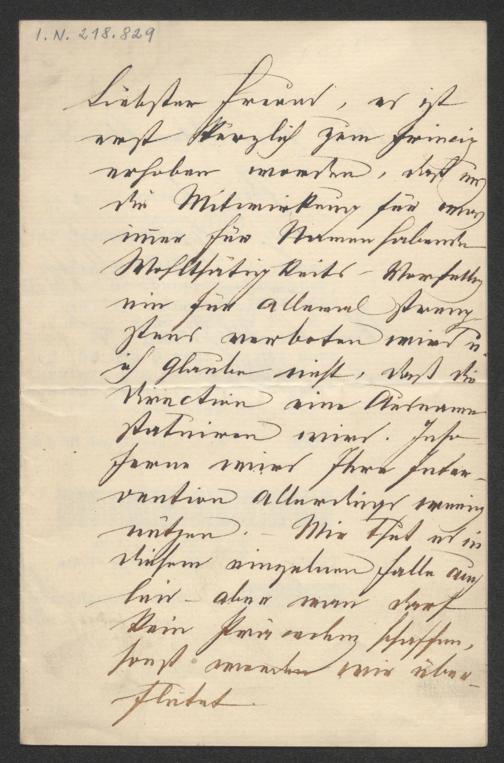 I. N. 218.829
Liebster Freund, es ist
erst kürzlich zum Princip
erhoben worden, daß uns
die Mitwirkung für was
immer für Namen habende
Wohlthätigkeits-Vorstellg
ein für allemal streng-
stens verboten wird u.
ich glaube nicht, daß die
Direction eine Ausname
statuiren wird. Inso-
ferne wird Ihre Inter-
vention allerdings wenig
nützen. – Mir thut es in
diesem einzelnen Falle auch
leid – aber man darf
kein Präcedenz schaffen,
sonst werden wir über-
flutet.